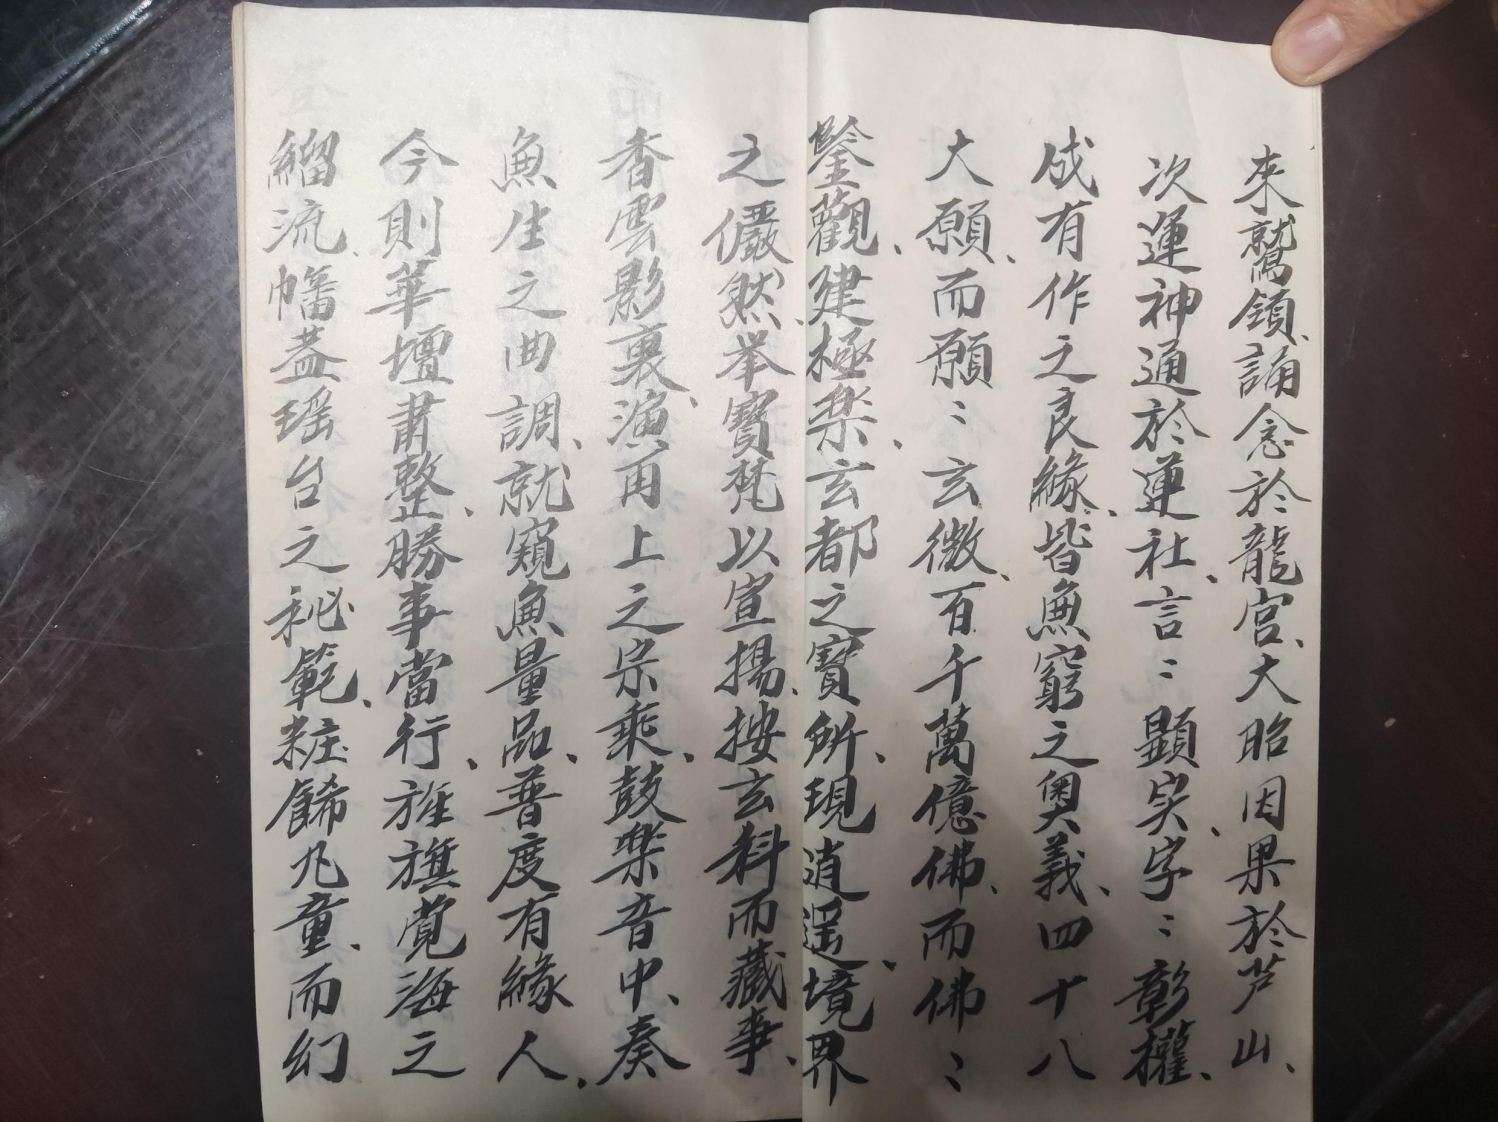 來鷲領、誦念於龍宮、大昭因果於芦山、
次運神通於蓮社、言〻顯实、字〻彰權、
成有作之良緣、皆無窮之奧義、四十八
大願、而願〻玄微、百千萬億佛、而佛〻
鑒觀、建極樂、玄都之寶所、現逍遥、境界
之儼然、举寶梵以宣揚、按玄科而藏事、
香雲影裏、演再上之宗乘、鼓樂音中、奏
無生之曲調、就窺無量品、普度有緣人、
今則華壇肅整、勝事當行、旌旗覺海之
緇流、幡蓋瑶台之秘範、粧餙九童、而幻